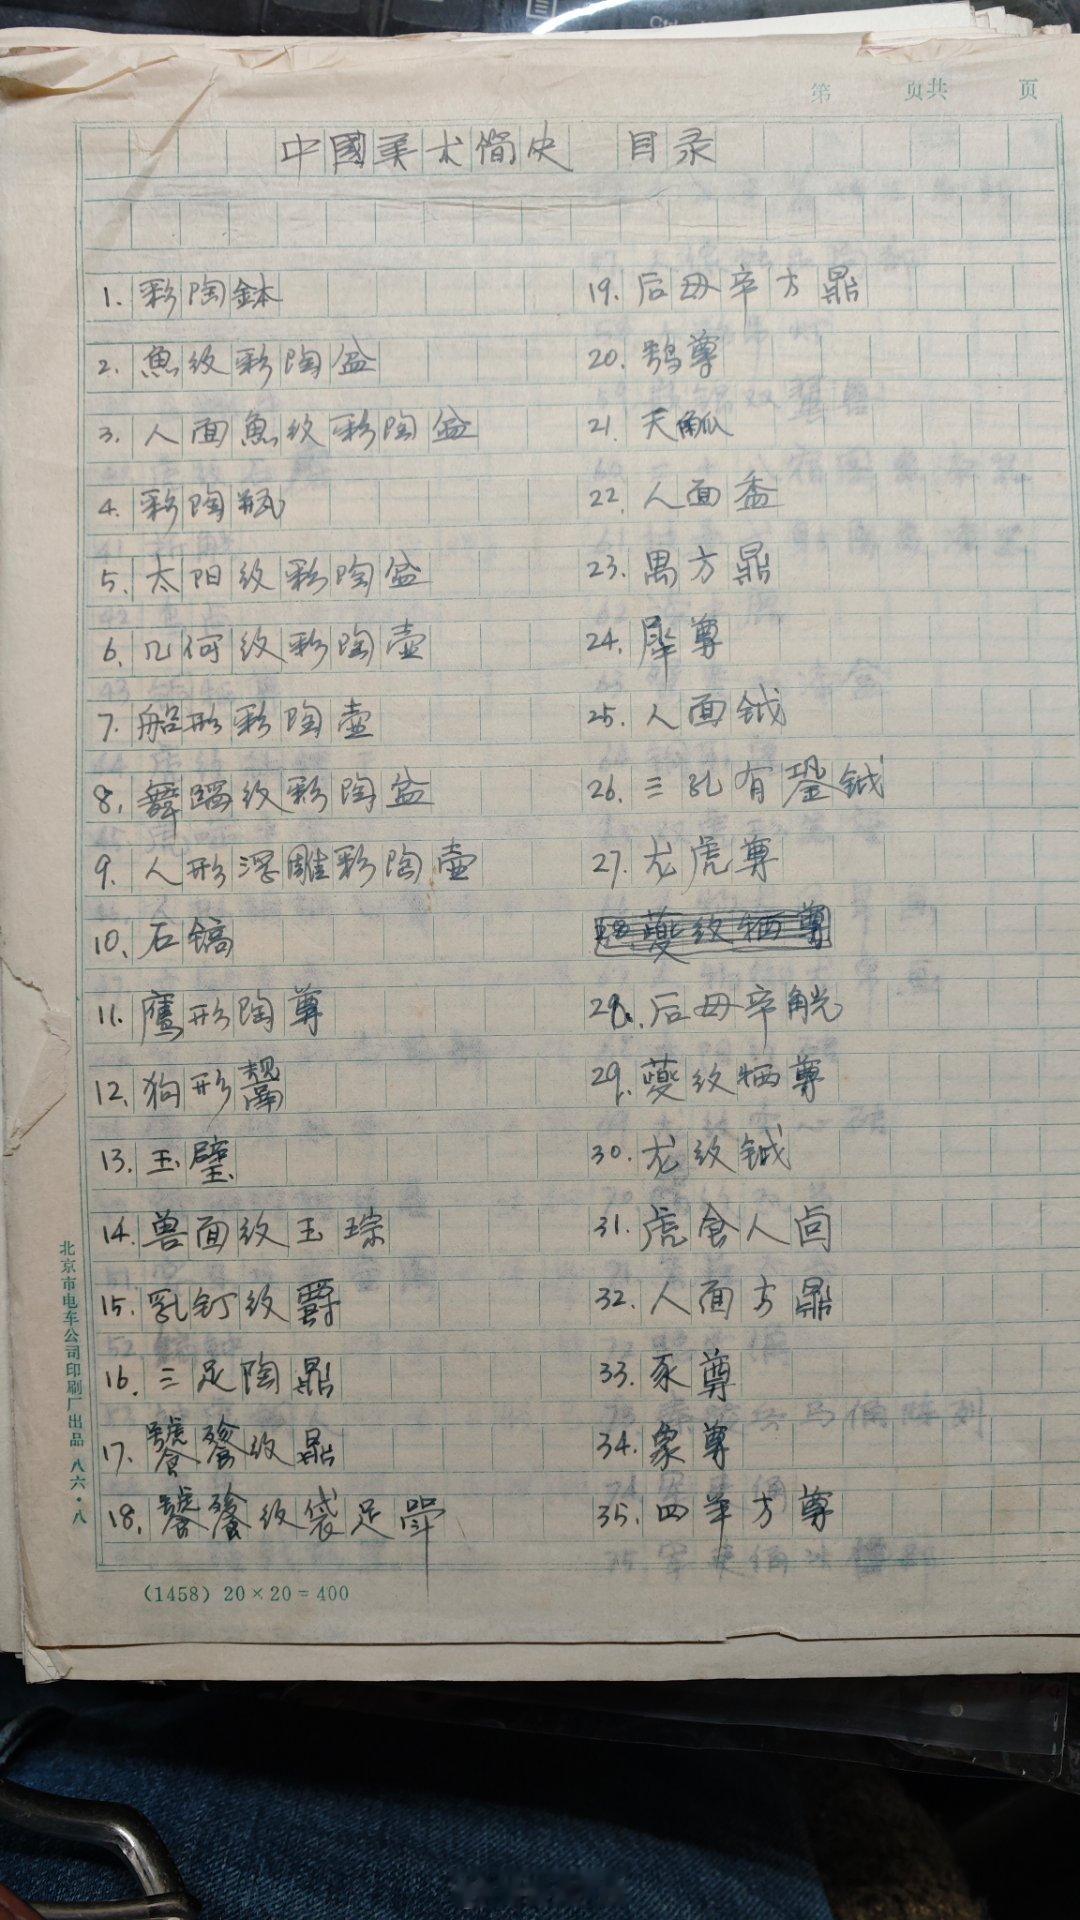 第 页共 页
中國美术简史 目录
1. 彩陶鉢
2. 魚纹彩陶盆
3. 人面魚纹彩陶盆
4. 彩陶瓶
5. 太阳纹彩陶盆
6. 几何纹彩陶壶
7. 船形彩陶壶
8. 舞蹈纹彩陶盆
9. 人形浮雕彩陶壶
10. 石镐
11. 鷹形陶尊
12. 狗形鬹
13. 玉璧
14. 兽面纹玉琮
15. 乳钉纹爵
16. 三足陶鼎
17. 饕餮纹鼎
18. 饕餮纹袋足斝
19. 后母辛方鼎
20. 鸮尊
21. 天觚
22. 人面盉
23. 禺方鼎
24. 犀尊
25. 人面钺
26. 三孔有銎钺
27. 龙虎尊
夔纹牺尊
28. 后母辛觥
29. 夔纹牺尊
30. 龙纹钺
31. 虎食人卣
32. 人面方鼎
33. 豕尊
34. 象尊
35. 四羊方尊
北京市电车公司印刷厂出品 八六·八
(1458) 20×20=400